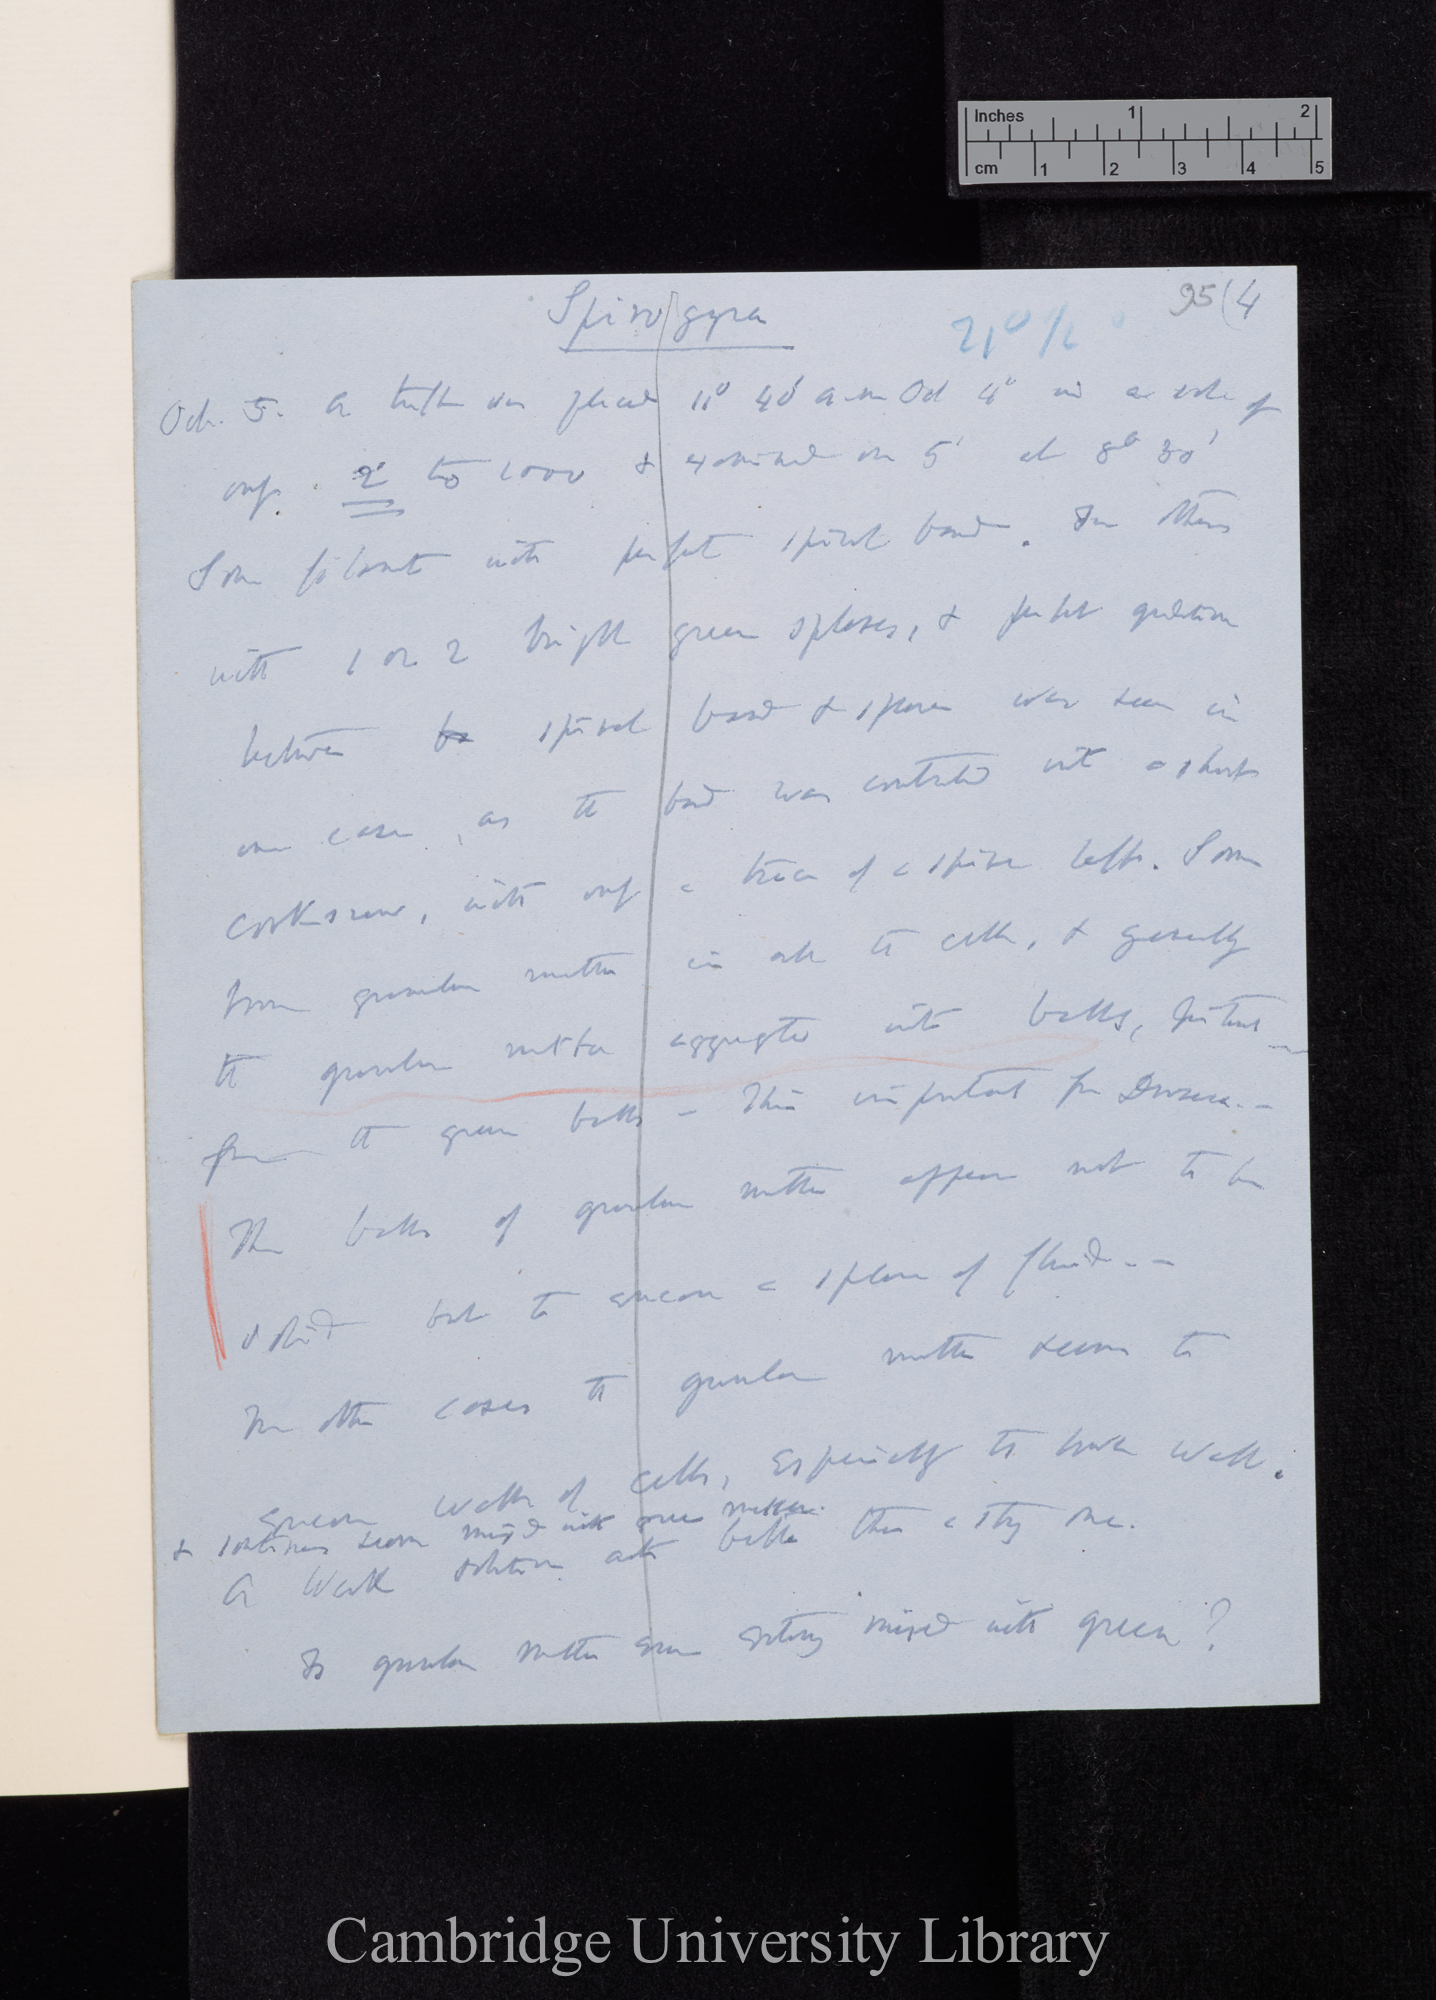 Inches 1 2
cm 1 2 3 4 5
Spirogyra
95 (4
Oct. 5. A tuft was placed 11° 40' a.m Oct 4° in a sol. of
only 2 to 1000 & examined on 5' at 8° 30'
Some filaments with perfect spiral band. In others
with 1 or 2 bright green spheres, & perfect gradation
between spiral band & spheres was seen in
one case, as the band was contracted into a short
corkscrew, with only a trace of a spire left. Some
brown granular matter in all the cells, & generally
the granular matter aggregates into balls, distinct
from the green balls – This important for Drosera. –
The balls of granular matter appear not to be
solid but to encase a sphere of fluid. – –
In other cases the granular matter seems to
encase walls of cells, especially the end walls.
& sometimes seems mixed with green matter.
A weak solution acts better than a strong one.
Is granular matter ever entirely mixed with green?
Cambridge University Library